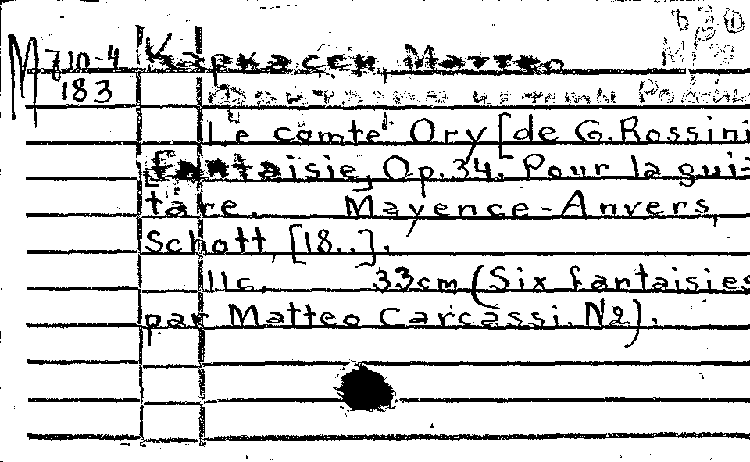 М 710-4 Каркасси, Маттео
183
Le comte Ory [de G. Rossini
fantaisie, Op. 34. Pour la gui-
tare. Mayence-Anvers,
Schott, [18..].
11c. 33cm (Six fantaisies
par Matteo Carcassi. N2).